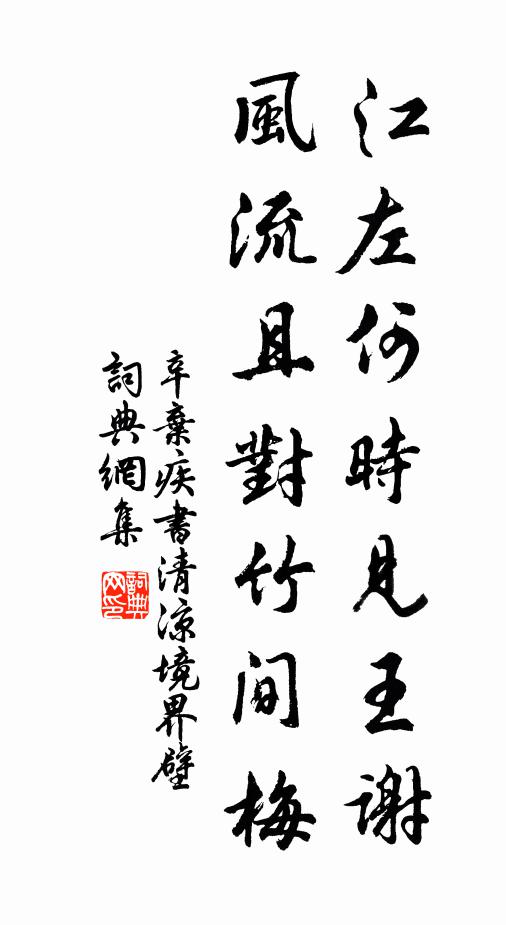 江左何時見王謝
風流且對竹間梅
辛棄疾書清涼境界壁
詞典網集
詞典網印